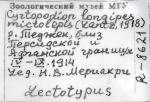 Зоологический музей МГУ
Cyrtopodion longipes
microlepis (Lantz, 1918)
р. Теджен, близ
Персидской и
Афганской границы
IV – IX. 1914
Lectotypus
R - 8621